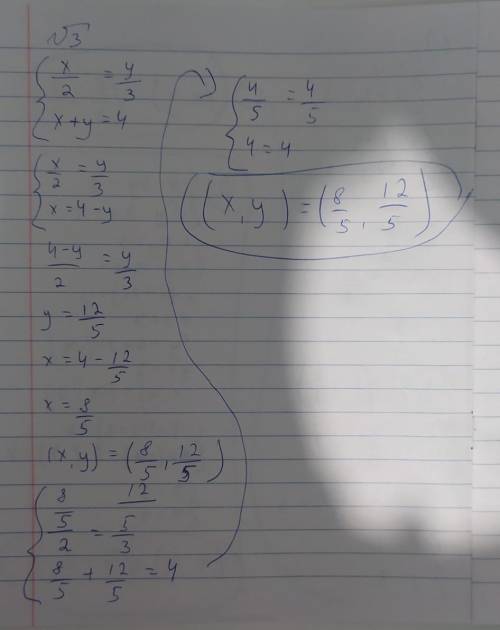 √3
{ x/2 = y/3
x+y=4
{ x/2 = y/3
x=4-y
4-y/2 = y/3
y = 12/5
x=4-12/5
x = 8/5
(x,y) = (8/5, 12/5)
{ 8/5/2 = 12/5/3
8/5 + 12/5 = 4
{ 4/5 = 4/5
4=4
(x,y) = (8/5, 12/5)